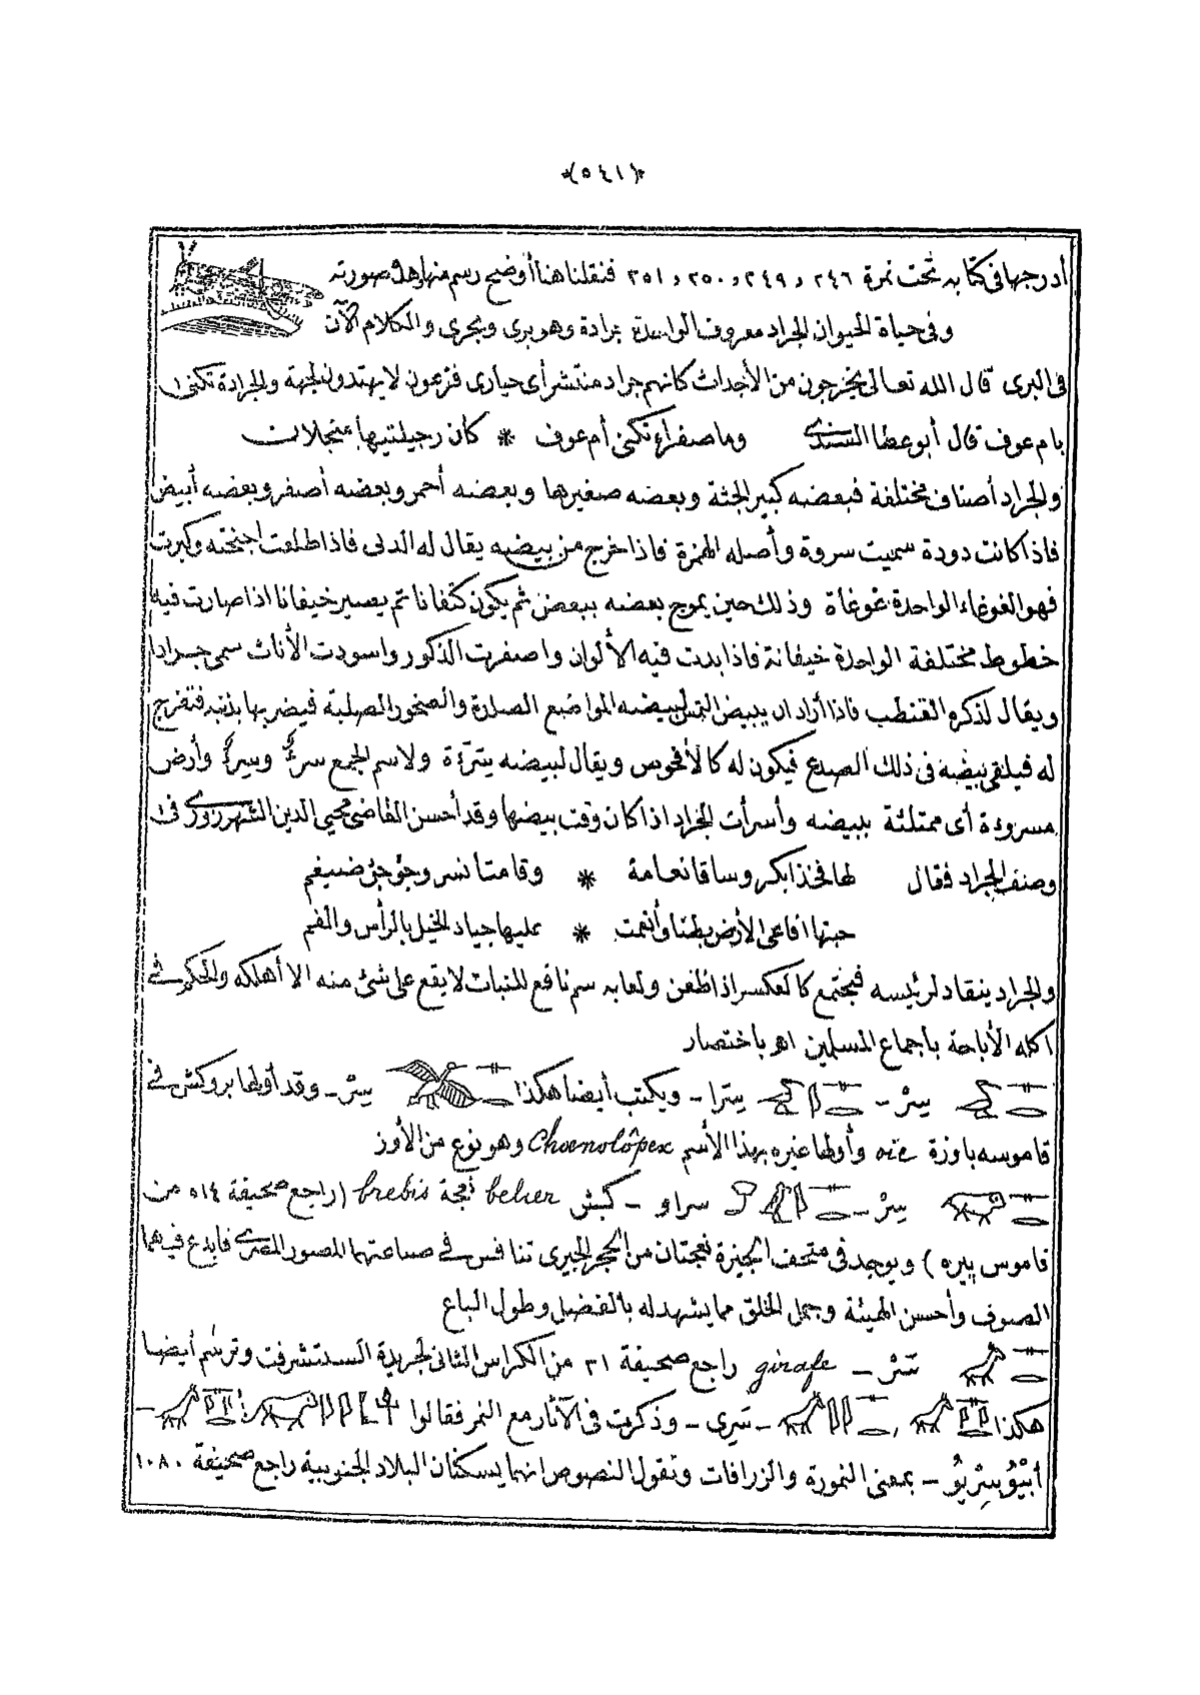 (٥٤١)
أدرجها فى كتابه تحت نمرة ٢٤٦ و ٢٤٩ و ٢٥٠ و ٢٥١ فنقلنا هنا أوضح رسم منها وهذه صورته
وفى حياة الحيوان الجراد معروف الواحدة جرادة وهو برى وبحرى والكلام الآن
فى البرى قال الله تعالى يخرجون من الأجداث كانهم جراد منتشر أى حيارى فزعون لا يهتدون لجهة والجرادة تكنى
بام عوف قال أبو عطا السندى وما صفراء تكنى أم عوف * كان رجيلتيها منجلات
والجراد أصناف مختلفة فبعضه كبير الجثة وبعضه صغيرها وبعضه أحمر وبعضه أصفر وبعضه أبيض
فاذا كانت دودة سميت سروة وأصله الهمزة فاذا خرج من بيضه يقال له الدبى فاذا طلعت اجنحته وكبرت
فهو الغوغاء الواحدة غوغاة وذلك حين يموج بعضه ببعض ثم يكون كتفانا ثم يصير خيفانا اذا صارت فيه
خطوط مختلفة الواحدة خيفانة فاذا بدت فيه الألوان واصفرت الذكور واسودت الأناث سمى جرادا
ويقال لذكره القنطب فاذا أراد ان يبيض التمس لبيضه المواضع الصلدة والصخور الصلبة فيضربها بذنبه فتفرج
له فيلقى بيضه فى ذلك الصدع فيكون له كالأفحوص ويقال لبيضه ولاسم الجمع سرء وسرء وأرض
مسروءة أى ممتلئة ببيضه وأسرأت الجراد اذا كان وقت بيضها وقد أحسن القاضى محيى الدين الشهرزورى فى
وصف الجراد فقال لها فخذا بكر وساقا نعامة * وقامتا نسر وجؤجؤ ضيغم
حبتها افاعى الأرض بطنا وأنعمت * عليها جياد الخيل بالرأس والفم
والجراد ينقاد لرئيسه فيجتمع كالعسكر اذا ظعن ولعابه سم نافع للنبات لا يقع على شئ منه الا أهلكه والحكم فى
اكله الأباحة بأجماع المسلمين اهـ باختصار
سِتْر - سِترا - ويكتب أيضا هكذا سِتْر - وقد أولها بروكش فى
قاموسه باوزة oie وأولها غيره بهذا الأسم Chœnolôpex وهو نوع من الأوز
سِتْر - سراو - كبش belier نعجة brebis (راجع صحيفة ٥١٤ من
قاموس پيره) ويوجد فى متحف الجيزة نعجتان من الحجر الجيرى تنافس فى صناعتهما المصور المصرى فابدع فيهما
الصوف وأحسن الهيئة وجمل الخلق مما يشهد له بالفضل وطول الباع
سَتْر - girafe راجع صحيفة ٣١ من الكراس الثانى لجريدة السنتشرفت وترسم أيضا
هكذا - سَرِى - وذكرت فى الآثار مع النمر فقالوا -
أَبْيُو سِتْرِيُو - بمعنى النمورة والزرافات وتقول النصوص انهما يسكنان البلاد الجنوبية راجع صحيفة ١٠٨٠